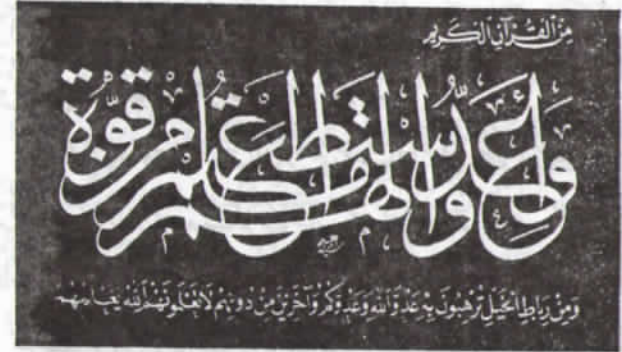 مِنَ ٱلْقُرْآنِ ٱلْكَرِيمِ
وَأَعِدُّوا لَهُم مَّا ٱسْتَطَعْتُم مِّن قُوَّةٍ
وَمِنْ رِبَاطِ ٱلْخَيْلِ تُرْهِبُونَ بِهِ عَدُوَّ ٱللَّهِ وَعَدُوَّكُمْ وَآخَرِينَ مِنْ دُونِهِمْ لَا تَعْلَمُونَهُمُ ٱللَّهُ يَعْلَمُهُمْ